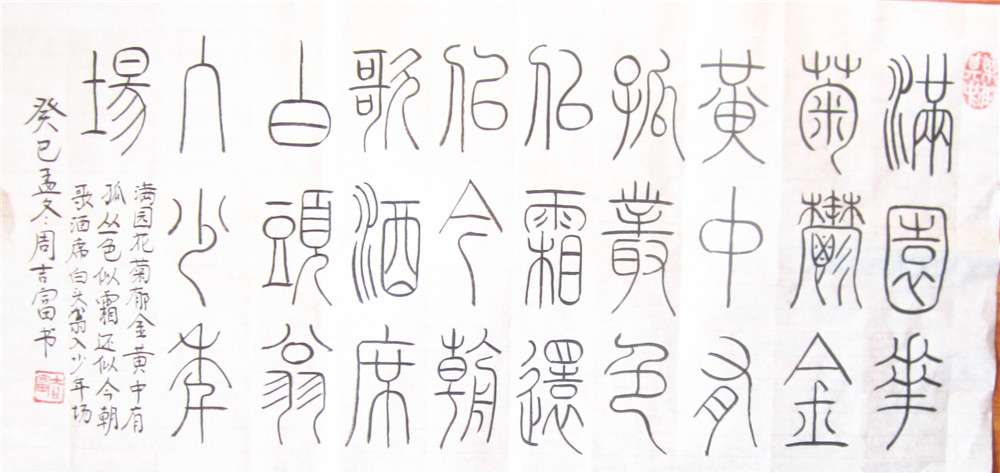 滿園華
菊鬱金
黃中有
孤叢色
佀霜還
佀今朝
歌酒席
白頭翁
入少年
場
满园花菊郁金黄中有
孤丛色似霜还似今朝
歌酒席白头翁入少年场
癸巳孟冬周吉富书